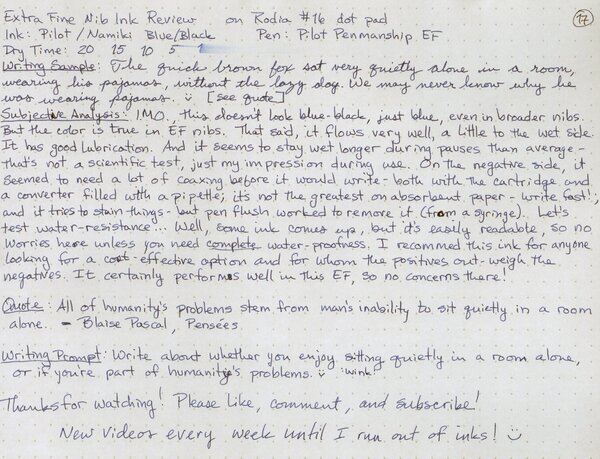 Extra Fine Nib Ink Review on Rodia #16 dot pad
17
Ink: Pilot/Namiki Blue/Black Pen: Pilot Penmanship EF
Dry Time: 20 15 10 5 1
Writing Sample: The quick brown fox sat very quietly alone in a room,
wearing his pajamas, without the lazy dog. We may never know why he
was wearing pajamas. :) [see quote]
Subjective Analysis: IMO, this doesn't look blue-black, just blue, even in broader nibs.
But the color is true in EF nibs. That said, it flows very well, a little to the wet side.
It has good lubrication. And it seems to stay wet longer during pauses than average -
that's not a scientific test, just my impression during use. On the negative side, it
seemed to need a lot of coaxing before it would write - both with the cartridge and
a converter filled with a pipette; it's not the greatest on absorbent paper - write fast!;
and it tries to stain things - but pen flush worked to remove it (from a syringe). Let's
test water-resistance... Well, some ink comes up, but it's easily readable, so no
worries here unless you need complete water-proofness. I recommed this ink for anyone
looking for a cost-effective option and for whom the positives out-weigh the
negatives. It certainly performs well in this EF, so no concerns there!
Quote: All of humanity's problems stem from man's inability to sit quietly in a room
alone. - Blaise Pascal, Pensées
Writing Prompt: Write about whether you enjoy sitting quietly in a room alone,
or if you're part of humanity's problems. :) *wink*
Thanks for watching! Please like, comment, and subscribe!
New videos every week until I run out of inks! :)